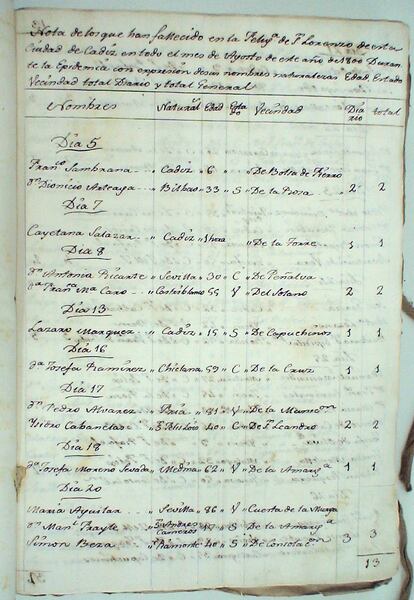 Nota de los que han fallecido en la Felig.ª de S. Lorenzo de esta
Ciudad de Cadiz en todo el mes de Agosto de este año de 1800 Duran
te la Epidemia con expresion de sus nombres naturalezas Edad, Estado
Vecindad total Diario y total General
Nombres Natural.s Edad Esta do Vecindad Dia rio total
Dia 5
Fran.co Sambrana Cadiz 6 " De Bolta de Fierro
D.n Dionicio Arteaga Bilbao 33 S De la Rosa 2 2
Dia 7
Cayetana Salazar Cadiz 1 hora De la Torre 1 1
Dia 8
D.a Antonia Ricarte Sevilla 30 C De Peñalva
D.a Fran.ca M.a Caro 55 V Del Sotano 2 2
Dia 13
Lazaro Marquez Cadiz 15 S De Capuchinos 1 1
Dia 16
D.a Josefa Ramirez Chiclana 59 C De la Cruz 1 1
Dia 17
D.n Pedro Alvarez 81 V De la
Ysidro Cabanelas 40 C De S. Leandro 2 2
Dia 18
D.a Josefa Moreno Medina 62 V De la Amarg.a 1 1
Dia 20
Maria Aguilar Sevilla 86 V Cuesta de la Murga
D.n Man.l Frayle S. Andres 17 S De la Amarg.a
Simon Beza Piamonte 40 S De Consolac.on 3 3
13